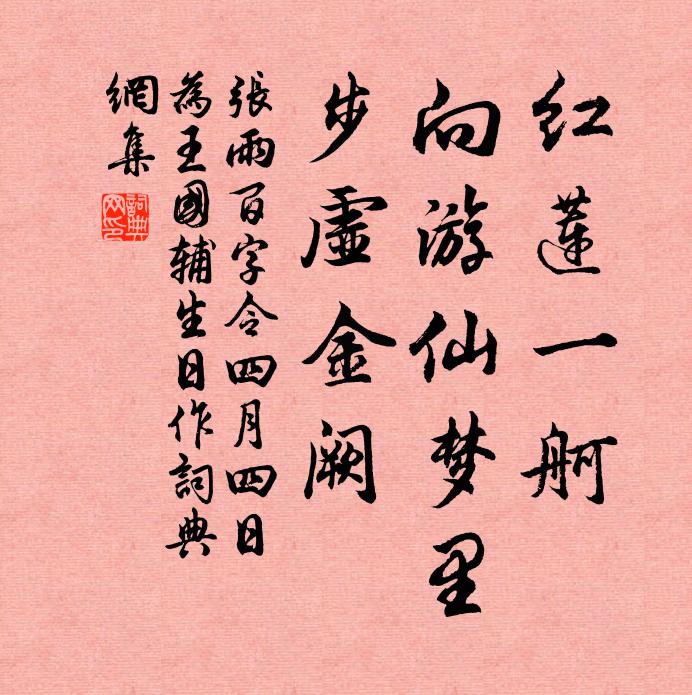 红蓮一舸
向游仙梦里
步虚金阙
張雨百字令四月四日
為王國輔生日作詞典
網集
詞典网印